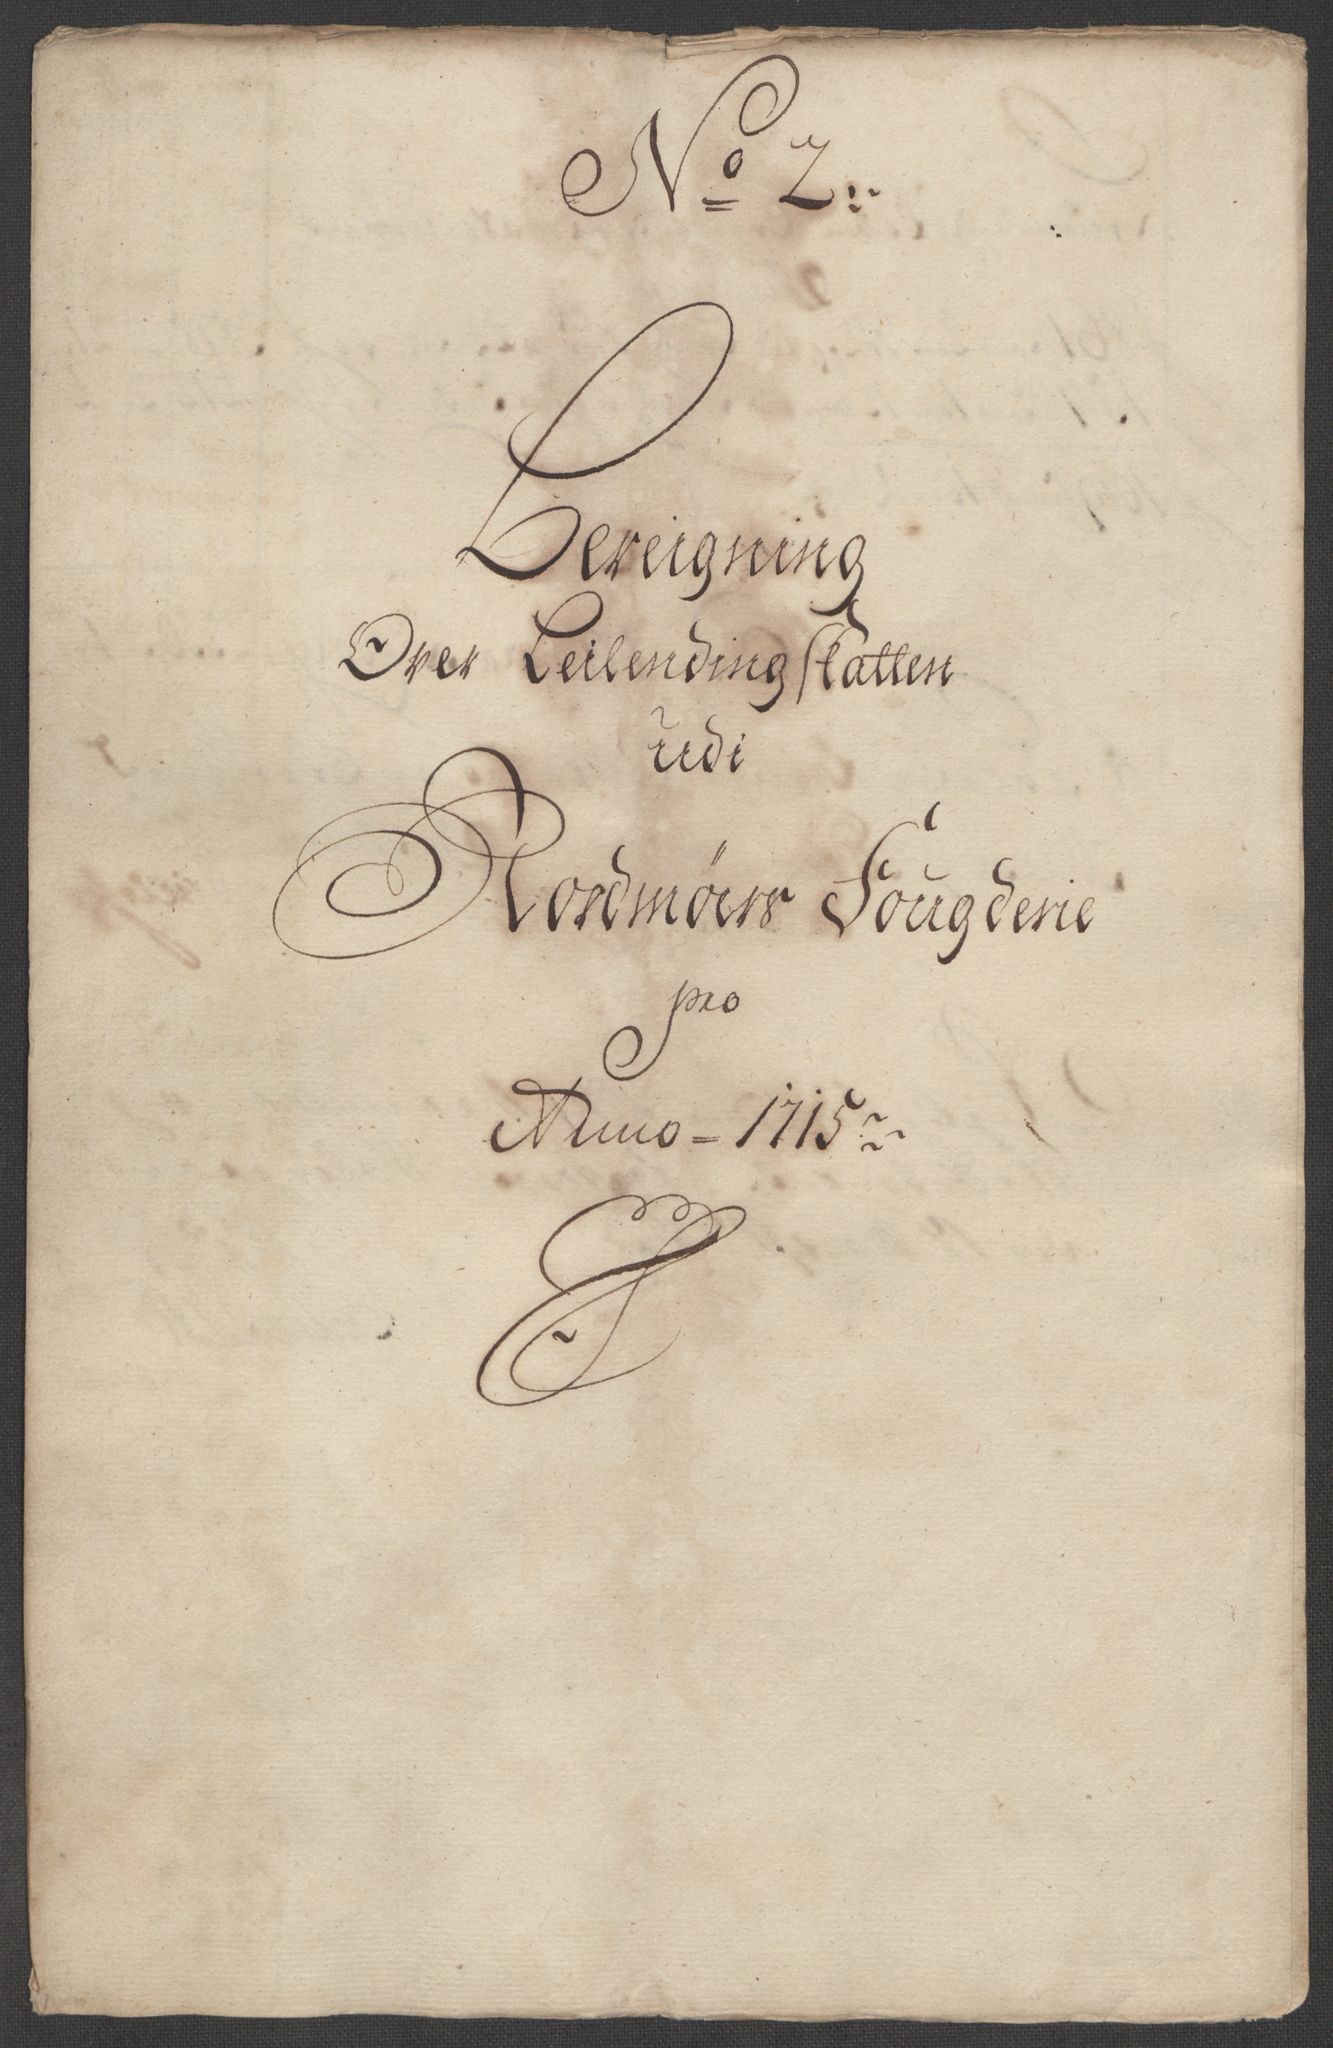 No 2:
Bereigning
Over Leilending skatten
udi
Nordmørs Fougderie
pro
Anno = 1715